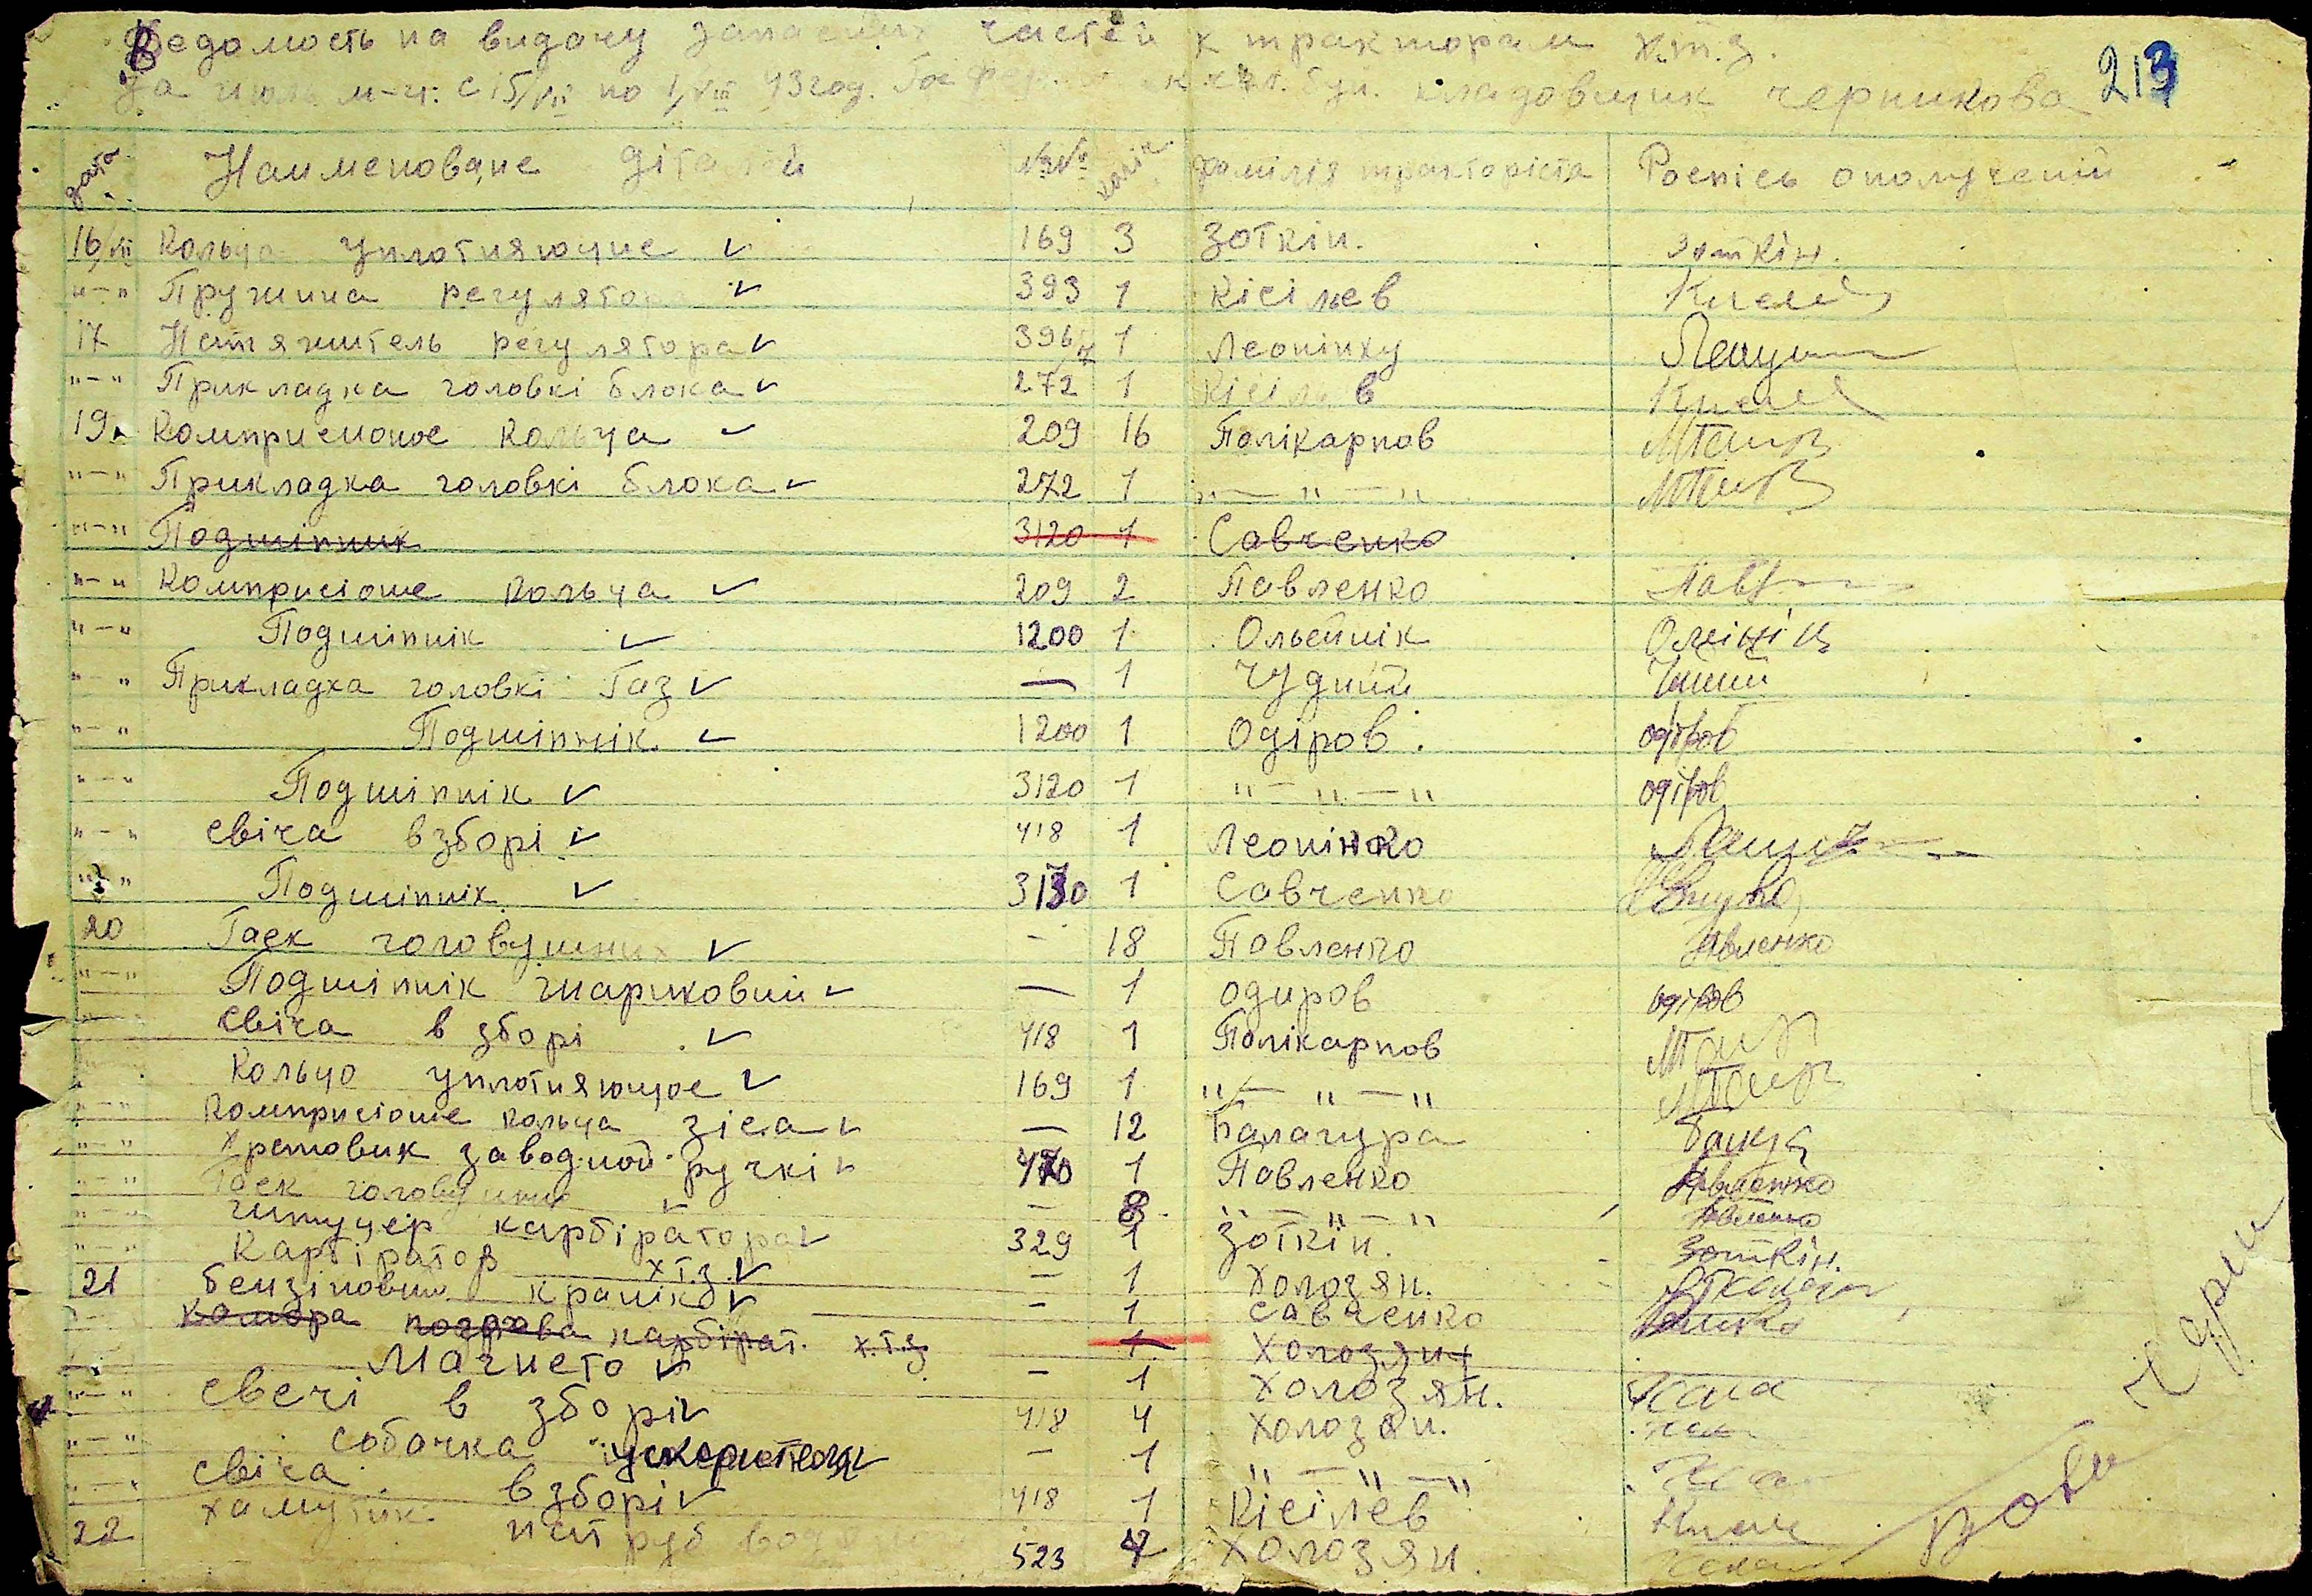 Ведомость на видачу запасних частей к тракторам х.т.з.
за июль м-ч. с 15/VII по 1/VIII 43 год. кладовщик черникова
213
дата Наименоване діталей №№ коліч. фамілія тракторіста Роспісь ополученій
16/VII Кольца уплотняющие ✓ 169 3 Зоткін. Зоткін.
"-" Пружина регулятора ✓ 393 1 Кісільев
17 Натяжитель регулятора ✓ 396/7 1 Леонінку
"-" Прикладка головкі блока ✓ 272 1 Кісільв
19 Комприсионое кольца ✓ 209 16 Полікарпов
"-" Прикладка головкі блока ✓ 272 1 "—"—"
"-" Подшіпник 3120 1 Савченко
"-" Комприсіоне кольца ✓ 209 2 Павленко
"-" Подшіпнік ✓ 1200 1 Ольейнік Олійнік
"-" Прикладка головкі Газ ✓ — 1 Чудний
"-" Подшіпнік ✓ 1200 1 Одіров. одіров
"-" Подшіпнік ✓ 3120 1 "—"—" одіров
"-" свіча взборі ✓ 418 1 Леонінко
"-" Подшіпнік ✓ 3130 1 Савченко
20 Гаек головушних ✓ — 18 Павленко Павленко
"-" Подшіпнік шариковий ✓ — 1 одиров одіров
"-" свіча в зборі ✓ 418 1 Полікарпов
"-" Кольцо уплотняющое ✓ 169 1 "—"—"
"-" Комприсіоне кольца зіса ✓ — 12 Балагура
"-" Храповик заводной ручкі ✓ 470 1 Павленко Павленко
"-" Гаек ✓ — 8 "—"—" Павленко
"-" штуцер карбіратора ✓ 329 1 Зоткін. Зоткін.
"-" Карбіратор х.т.з. ✓ — 1 Холозян.
21 бензіновий кранік ✓ — 1 Савченко
"-" камера карбірат. х.т.з 1 Холозян
"-" Магнето ✓ — 1 Холозян.
"-" свечі в зборі ✓ 418 4 Холозян.
"-" собачка ускорителя ✓ — 1 "—"—"
"-" свіча взборі ✓ 418 1 Кісілев
22 хамутик патруб 523 4 Холозян.